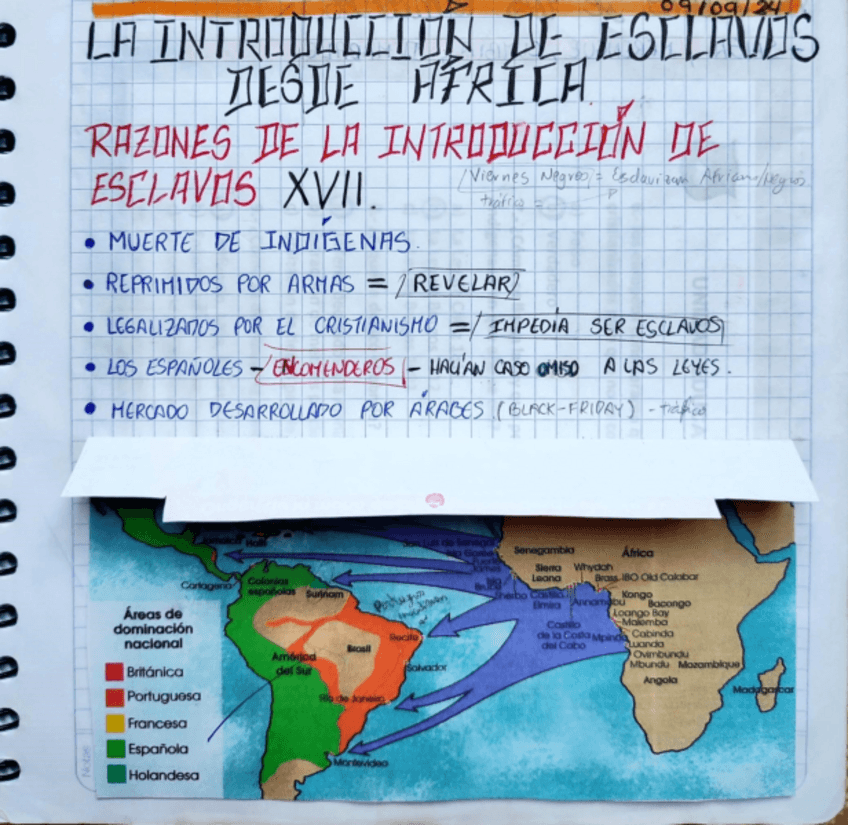 09/09/24
LA INTRODUCCIÓN DE ESCLAVOS
DESDE AFRICA
RAZONES DE LA INTRODUCCIÓN DE
ESCLAVOS XVII.
Viernes Negros = Esclavizan African/Negros
tráfico =
• MUERTE DE INDÍGENAS.
• REPRIMIDOS POR ARMAS = REVELAR
• LEGALIZADOS POR EL CRISTIANISMO = IMPEDÍA SER ESCLAVOS
• LOS ESPAÑOLES - ENCOMENDEROS - HACÍAN CASO OMISO A LAS LEYES.
• MERCADO DESARROLLADO POR ÁRABES (BLACK-FRIDAY) - Tráfico
Senegambia
África
Sierra Leona
Whydah
Brass
IBO Old Calabar
Cartagena
Colonias españolas
Surinam
Elmina
Annamabu
Kongo
Bacongo
Loango Bay
Malemba
Castillo de la Costa del Cabo
Mpinda
Cabinda
Luanda
Ovimbundu
Mbundu
Mozambique
Angola
Madagascar
Recife
Brasil
Salvador
América del Sur
Río de Janeiro
Montevideo
Áreas de
dominación
nacional
Británica
Portuguesa
Francesa
Española
Holandesa